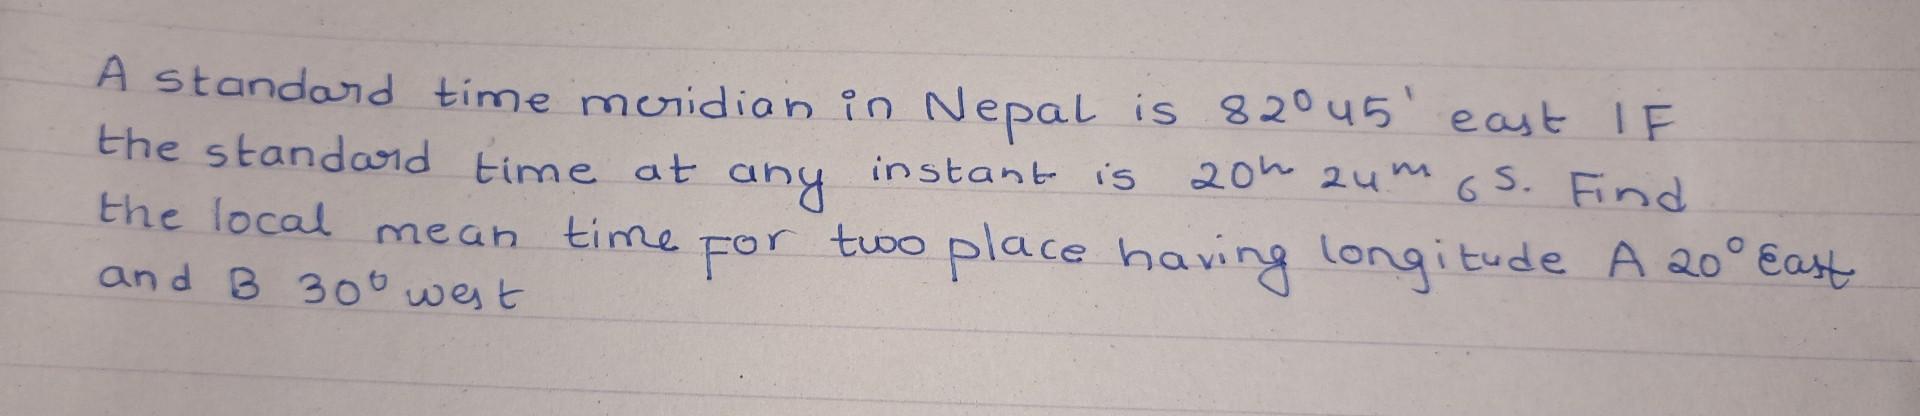 A standard time meridian in Nepal is 82° 45' east IF
the standard time at any instant is 20h 24m 6s. Find
the local mean time For two place having longitude A 20° East
and B 30° west